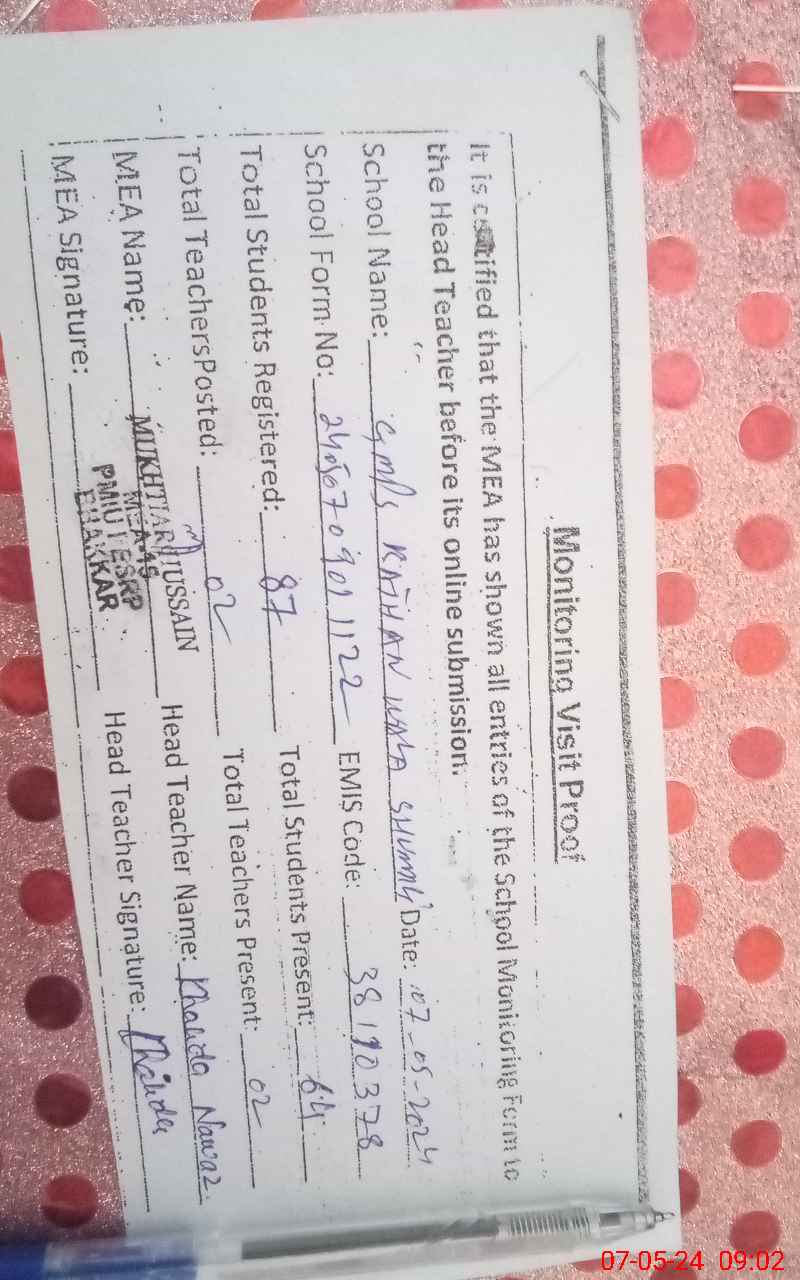 Monitoring Visit Proof
It is certified that the MEA has shown all entries of the School Monitoring Form to
the Head Teacher before its online submission.
School Name: GMPS KATHAN WALA SHUMALI Date: 07-05-2024
School Form No: EMIS Code: 38190378
Total Students Registered: 87 Total Students Present: 64
Total Teachers Posted: 02 Total Teachers Present: 02
MEA Name: MUKHTIAR HUSSAIN Head Teacher Name: Khalida Nawaz
MEA 45
PMIU PESRP
BHAKKAR
MEA Signature: Head Teacher Signature: Khalida
07-05-24 09:02